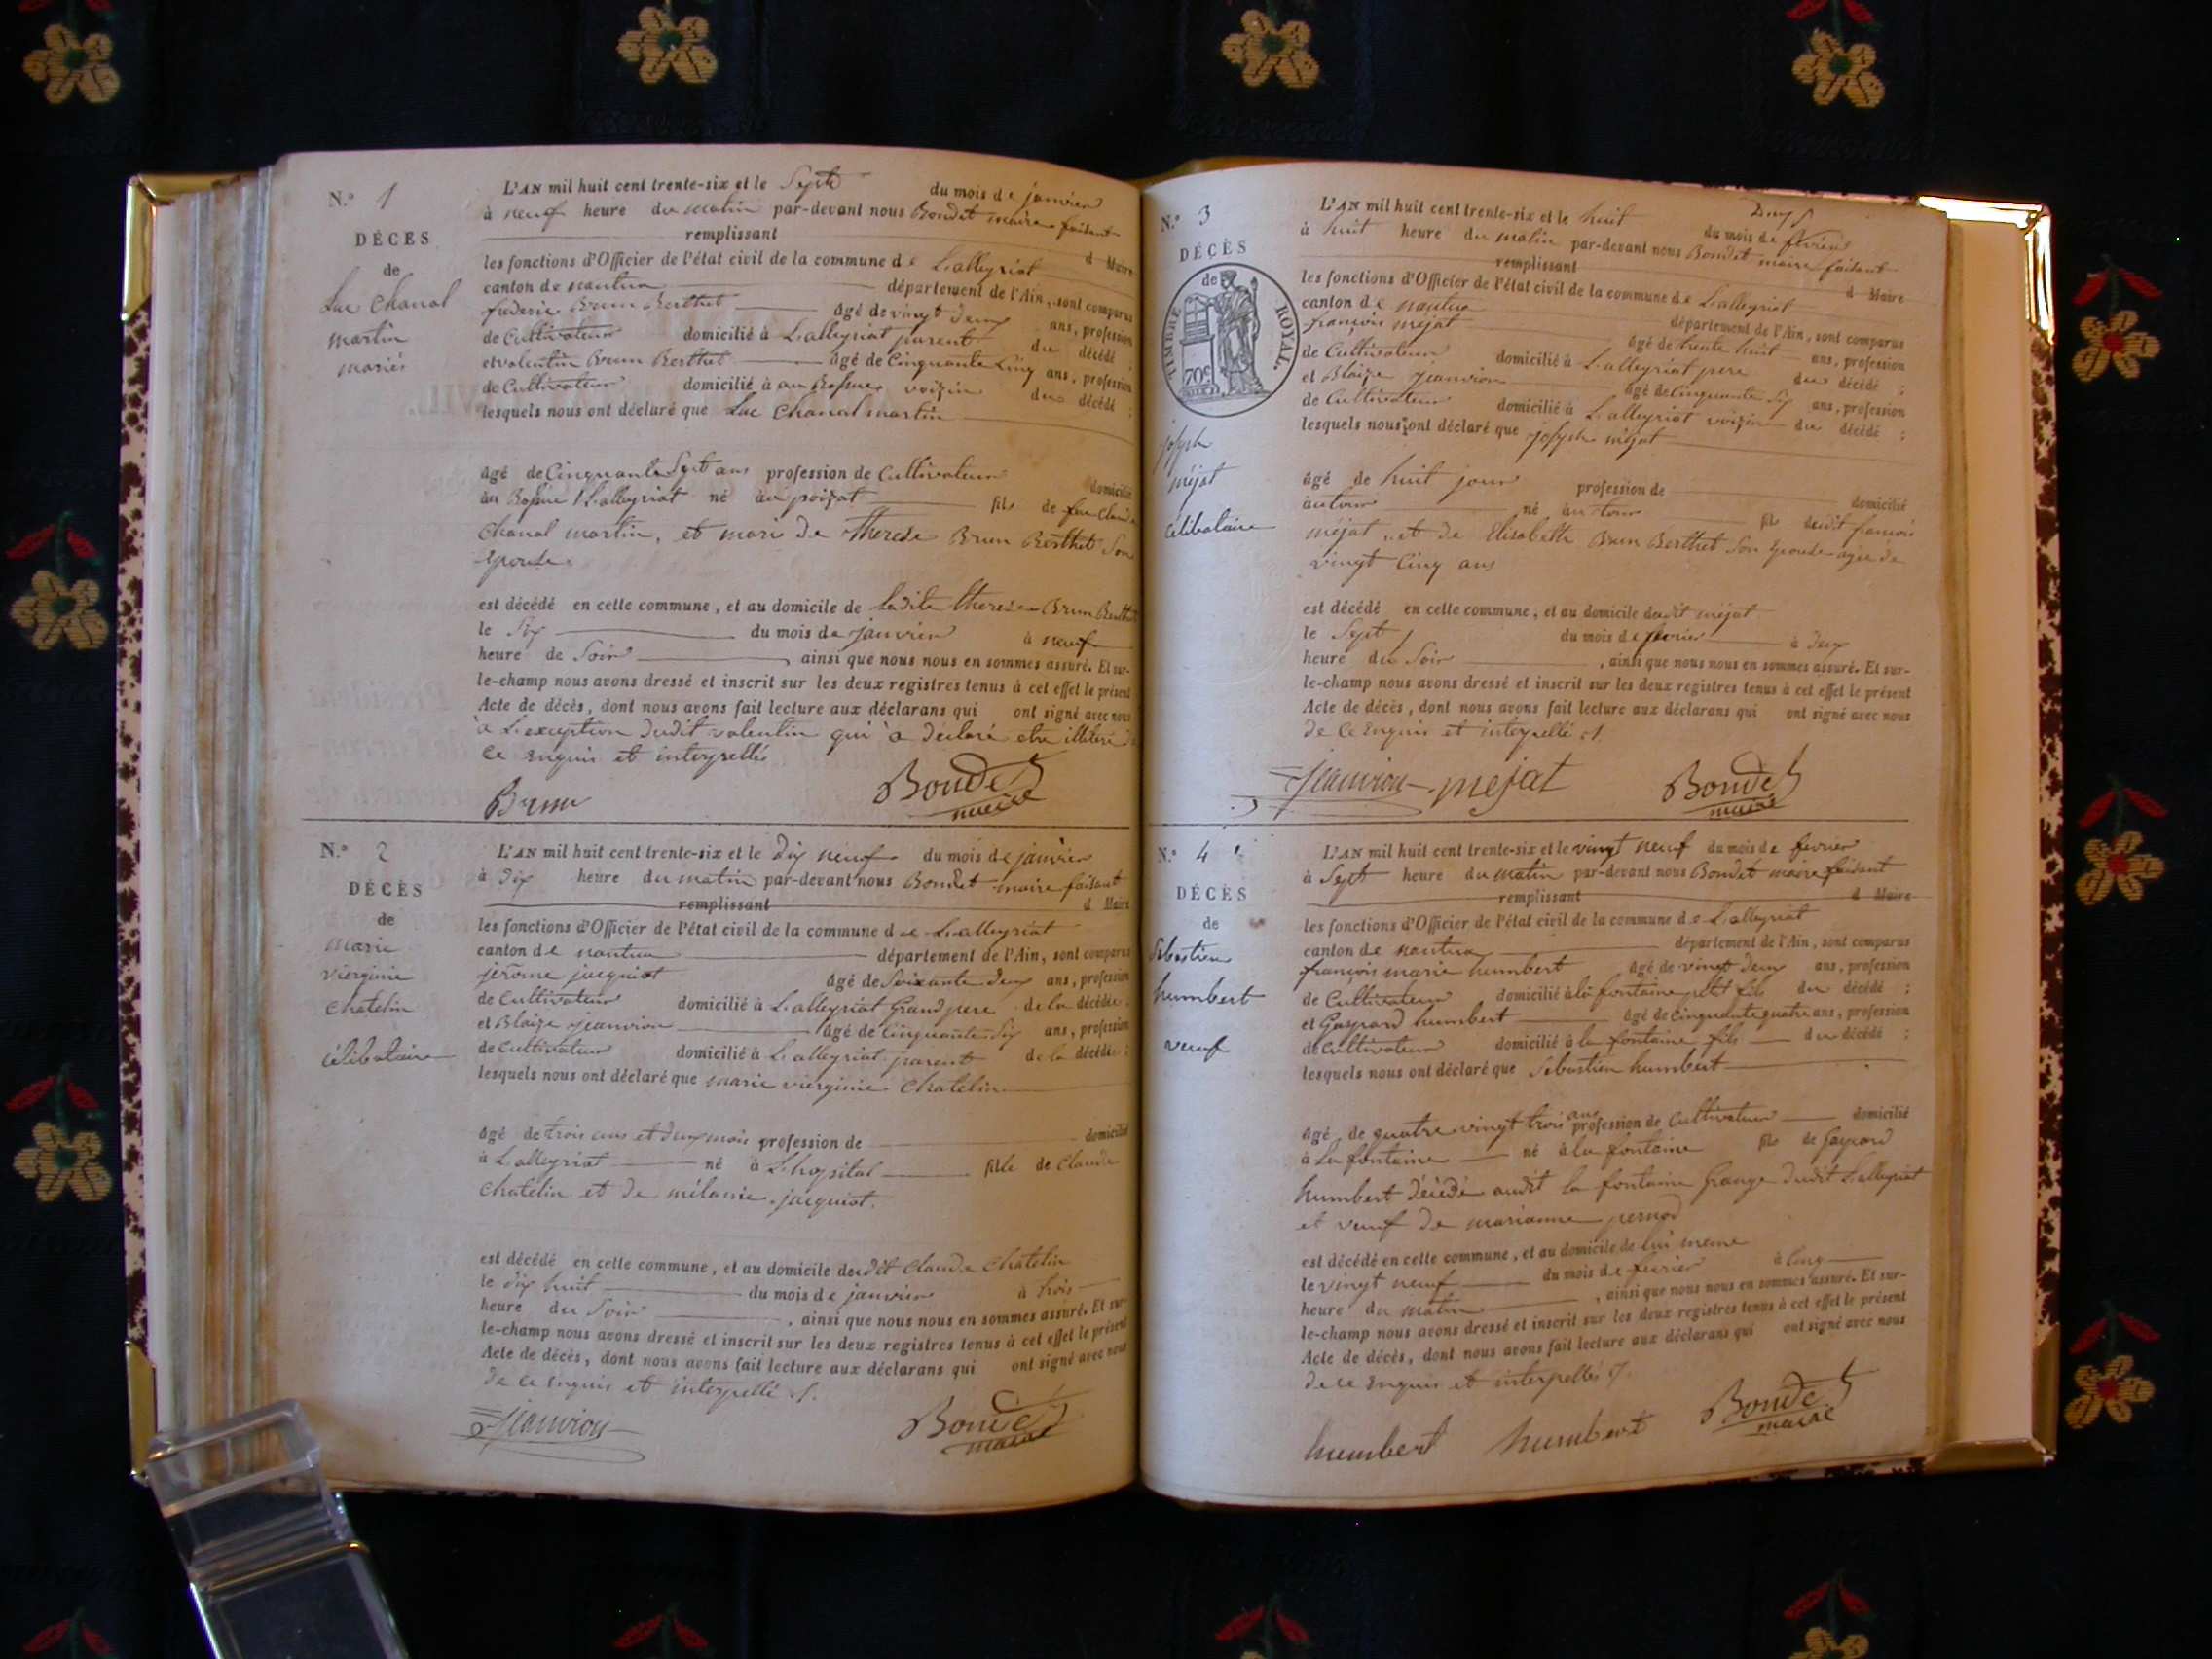 N.° 1
DÉCES
de
Luc Chanal
martin
mariés
L'AN mil huit cent trente-six et le Sept du mois de janvier
à neuf heure du matin par-devant nous Bondet maire faisant
remplissant d Maire
les fonctions d'Officier de l'état civil de la commune de Lalleyriat
canton de nantua département de l'Ain, sont comparus
frederic Brun Berthet âgé de vingt deux ans, profession
de Cultivateur domicilié à Lalleyriat parent du décédé ;
et valentin Brun Berthet âgé de Cinquante Cinq ans, profession
de Cultivateur domicilié à au voizin du décédé ;
lesquels nous ont déclaré que Luc Chanal martin
âgé de Cinquante Sept ans profession de Cultivateur domicilié
au Lalleyriat né au poizat fils de feu Claude
Chanal martin, et mari de Therese Brun Berthet Son
Epouse
est décédé en cette commune, et au domicile de Ladite therese Brun Berthet
le Six du mois de janvier à neuf
heure de Soir , ainsi que nous nous en sommes assuré. Et sur-
le-champ nous avons dressé et inscrit sur les deux registres tenus à cet effet le présent
Acte de décès, dont nous avons fait lecture aux déclarans qui ont signé avec nous
à L'exception dudit valentin qui a déclaré etre illiteré
ce Enquis et interpellés
Brun Bondet
maire
N.° 2
DÉCÈS
de
marie
vierginie
Chatelin
célibataire
L'AN mil huit cent trente-six et le Dix neuf du mois de janvier
à Dix heure du matin par-devant nous Bondet maire faisant
remplissant d Maire
les fonctions d'Officier de l'état civil de la commune de Lalleyriat
canton de nantua département de l'Ain, sont comparus
jerôme jacquiot âgé de Soixante deux ans, profession
de Cultivateur domicilié à Lalleyriat Grand pere de la décédée ;
et Blaize jeanvion âgé de Cinquante Six ans, profession
de Cultivateur domicilié à Lalleyriat parent de la décédée ;
lesquels nous ont déclaré que marie vierginie Chatelin
âgé de trois ans et deux mois profession de domicilié
à Lalleyriat né à L'hopital fille de Claude
Chatelin et de mélanie jacquiot.
est décédé en cette commune, et au domicile dudit Claude Chatelin
le dix huit du mois de janvier à trois
heure du Soir , ainsi que nous nous en sommes assuré. Et sur-
le-champ nous avons dressé et inscrit sur les deux registres tenus à cet effet le présent
Acte de décès, dont nous avons fait lecture aux déclarans qui ont signé avec nous
de ce Enquis et interpellé
Jeanvion Bondet
maire
Deux
N.° 3
DÉCÈS
de
TIMBRE ROYAL
70c
joseph
méjat
célibataire
L'AN mil huit cent trente-six et le huit du mois de fevrier
à huit heure du matin par-devant nous Bondet maire faisant
remplissant d Maire
les fonctions d'Officier de l'état civil de la commune de Lalleyriat
canton de nantua département de l'Ain, sont comparus
françois méjat âgé de trente huit ans, profession
de Cultivateur domicilié à Lalleyriat pere du décédé ;
et Blaize jeanvion âgé de Cinquante Six ans, profession
de Cultivateur domicilié à Lalleyriat voizin du décédé ;
lesquels nous ont déclaré que joseph méjat
âgé de huit jour profession de domicilié
au tour né au tour fils dudit françois
méjat, et de Elisabeth Brun Berthet Son Epouse agée de
vingt Cinq ans
est décédé en cette commune, et au domicile dudit méjat
le Sept du mois de fevrier à deux
heure du Soir , ainsi que nous nous en sommes assuré. Et sur-
le-champ nous avons dressé et inscrit sur les deux registres tenus à cet effet le présent
Acte de décès, dont nous avons fait lecture aux déclarans qui ont signé avec nous
de ce Enquis et interpellé
Jeanvion mejat Bondet
maire
N.° 4
DÉCÈS
de
Sebastien
humbert
veuf
L'AN mil huit cent trente-six et le vingt neuf du mois de fevrier
à Sept heure du matin par-devant nous Bondet maire faisant
remplissant d Maire
les fonctions d'Officier de l'état civil de la commune de Lalleyriat
canton de nantua département de l'Ain, sont comparus
françois marie humbert âgé de vingt deux ans, profession
de Cultivateur domicilié à la fontaine petit fils du décédé ;
et Gaspard humbert âgé de Cinquante quatre ans, profession
de Cultivateur domicilié à la fontaine fils du décédé ;
lesquels nous ont déclaré que Sebastien humbert
âgé de quatre vingt trois ans profession de Cultivateur domicilié
à La fontaine né à la fontaine fils de Gaspard
humbert décédé audit la fontaine Grange dudit Lalleyriat
et veuf de marianne pernod
est décédé en cette commune, et au domicile de lui meme
le vingt neuf du mois de fevrier à Cinq
heure du matin , ainsi que nous nous en sommes assuré. Et sur-
le-champ nous avons dressé et inscrit sur les deux registres tenus à cet effet le présent
Acte de décès, dont nous avons fait lecture aux déclarans qui ont signé avec nous
de ce Enquis et interpellés
humbert humbert Bondet
maire